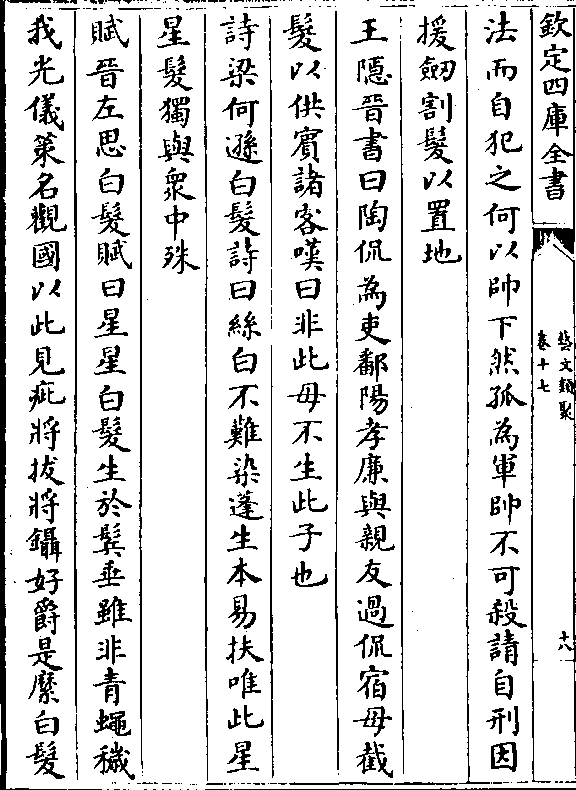 欽定四庫全書
藝文類聚
卷十七
十八
法而自犯之何以帥下然孤為軍帥不可殺請自刑因
援劒割髮以置地
王隱晉書曰陶侃為吏鄱陽孝廉與親友過侃宿母截
髮以供賓諸客嘆曰非此母不生此子也
詩梁何遜白髮詩曰絲白不難染蓬生本易扶唯此星
星髮獨與衆中殊
賦晉左思白髮賦曰星星白髮生於鬂垂雖非青蠅穢
我光儀策名觀國以此見疵將拔將鑷好爵是縻白髮